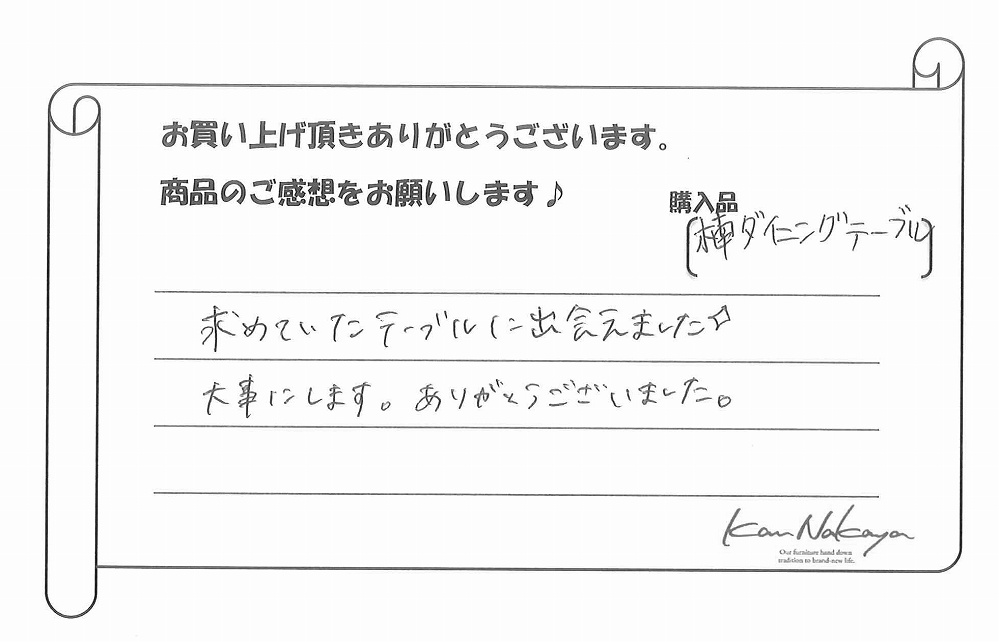 お買い上げ頂きありがとうございます。
商品のご感想をお願いします♪
購入品
楠ダイニングテーブル
求めていたテーブルに出会えました☆
大事にします。ありがとうございました。
Kan Nakaya
Our furniture hand down
tradition to brand-new life.